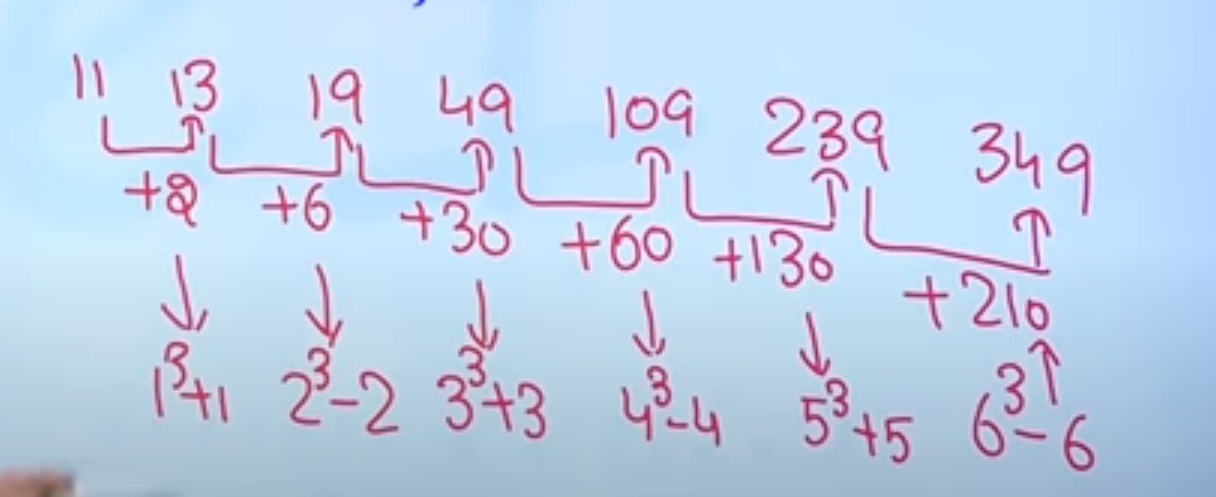 11 13 19 49 109 239 349
+2 +6 +30 +60 +130 +210
1³+1 2³-2 3³+3 4³-4 5³+5 6³-6